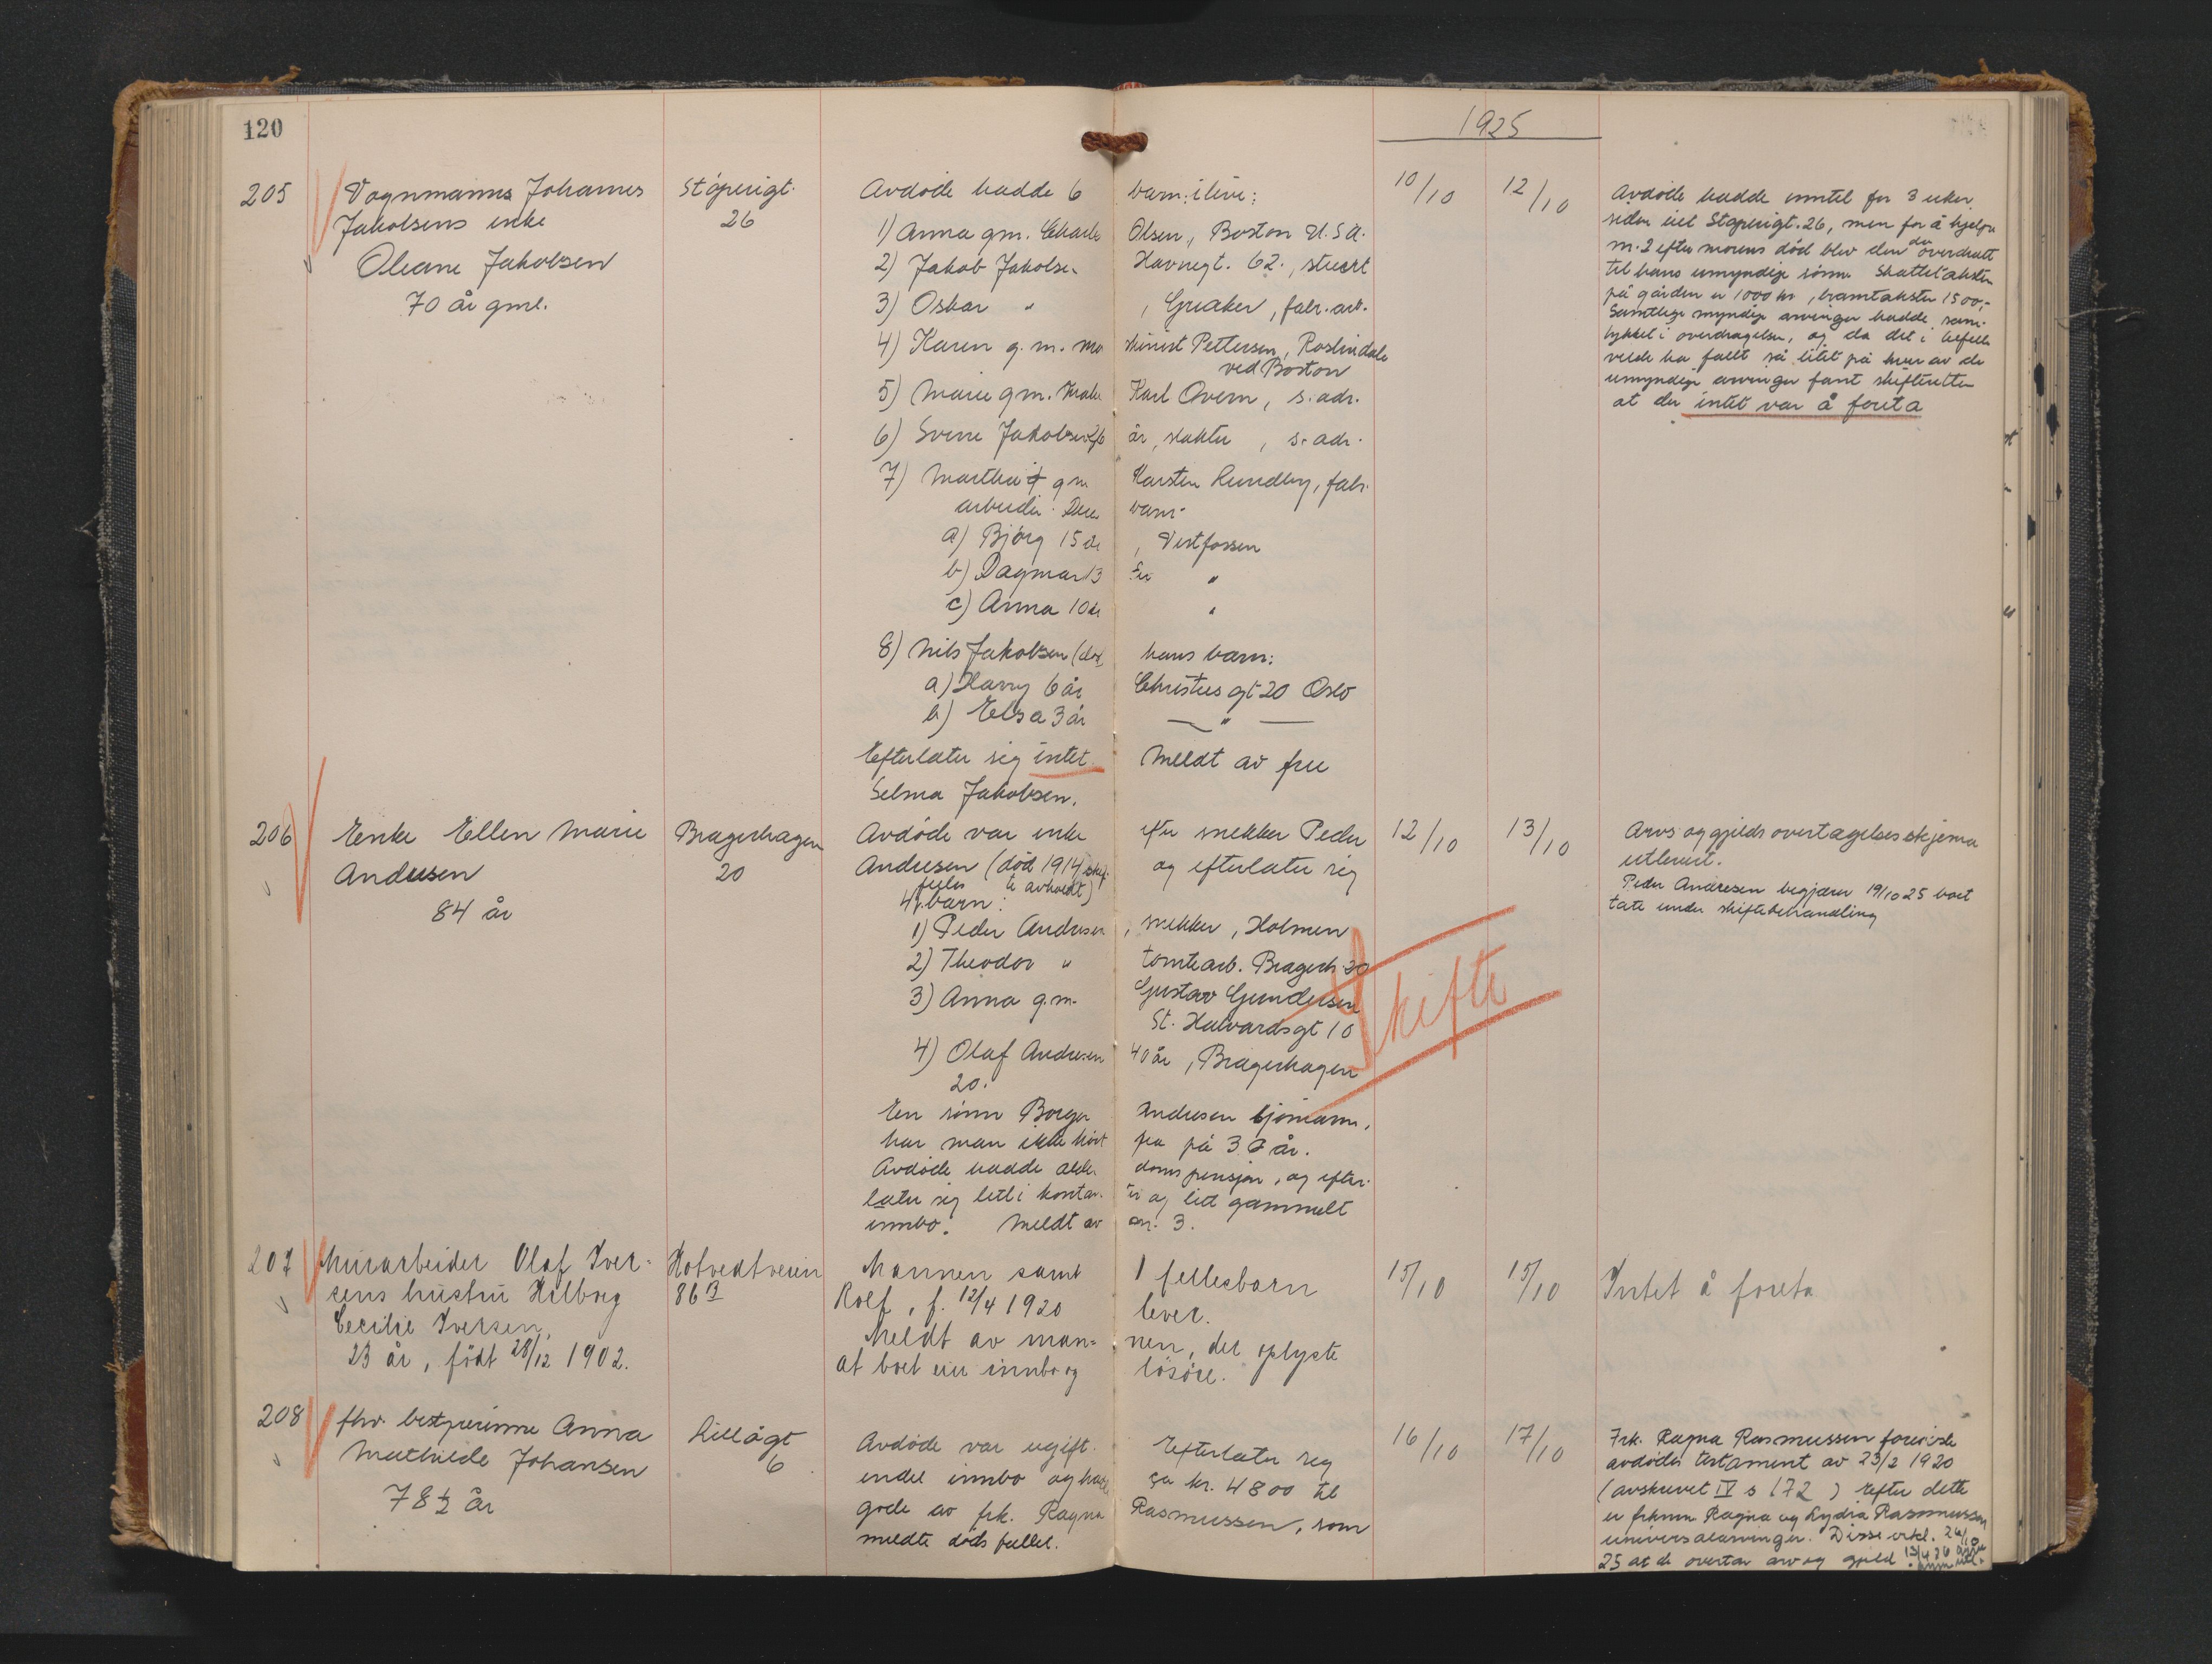 120
1925
205
Vognmanns Johannes
Jakobsens enke
Oleane Jakobsen
70 år gml.
Støperigt.
26
Avdøde hadde 6 barn i live:
1) Anna gm. Charle Olsen, Boston U.S.A.
2) Jakob Jakobsen Havnegt. 62., stuert
3) Oskar " , Greaker, fabr. arb.
4) Karen g. m. maskinist Pettersen, Roslindale
ved Boston
5) Marie gm. Karl Overn, s. adr.
6) Sverre Jakobsen år, slakter, s. adr.
7) Marthea † gm Karsten Lundby, fabr.
arbeider. Deres barn
a) Bjørg 15 år , Vestfossen
b) Dagmar 13 år "
c) Anna 10 år "
8) Nils Jakobsen (død hans barn:
a) Harry 6 år Christies gt 20 Oslo
b) Elsa 3 år — " —
Efterlater sig intet. Meldt av fru
Selma Jakobsen.
10/10
12/10
Avdøde hadde inntil for 3 uker
siden eiet Støperigt. 26, men for å hjelpe
m. 2 efter morens død blev den da overdratt
til hans umyndige sønn. Skattetaksten
på gården er 1000 kr, branntakster 1500,-
Samtlige myndige arvinger hadde sam-
tykket i overdragelsen, og da det i tilfelle
vilde ha falt så litet på hver av de
umyndige arvinger fant skifteretten
at der intet var å foreta
206
Enke Ellen Marie
Andresen
84 år
Bragerhagen
20
Avdøde var enke efter snekker Peder
Andresen (død 1914 skif-
te avholdt) og efterlater sig
4 felles barn:
1) Peder Andresen , snekker, Holmen
2) Theodor " tomtearb. Bragerh. 20
3) Anna g.m. Gustav Gundersen
St. Halvardsgt 10
4) Olaf Andresen 40 år, Bragerhagen
20.
En sønn Borger Andresen sjømann,
har man ikke hørt fra på 30 år.
Avdøde hadde alderdomspensjon, og efter-
later sig litt i kontanter og litt gammelt
innbo. Meldt av nr. 3.
12/10
13/10
Skifte
Arvs og gjelds overtagelsesskjema
utlevert.
Peder Andresen begjærer 19/10 25 boet
tatt under skiftebehandling
207
Murarbeider Olaf Iver-
sens hustru Hilborg
Cecilie Iversen,
23 år, født 28/12 1902.
Hotvedtveien
86 B
Mannen samt 1 fellesbarn
Rolf, f. 12/4 1920 lever.
Meldt av man- nen, det oplyste
at boet eier innbo og løsøre.
15/10
15/10
Intet å foreta
208
fhv. bestyrerinne Anna
Mathilde Johansen
78 ½ år
Lilleågt
6
Avdøde var ugift. Efterlater sig
endel innbo og hadde ca kr. 4800 til
gode av frk. Ragna Rasmussen, som
meldte dødsfallet.
16/10
17/10
Frk. Ragna Rasmussen foreviste
avdødes testament av 23/2 1920
(avskrevet IV s 172) Efter dette
er frknn. Ragna og Lydia Rasmussen
universalarvinger. Disse erkl. 26/10
25 at de overtar arv og gjeld. 13/4 26